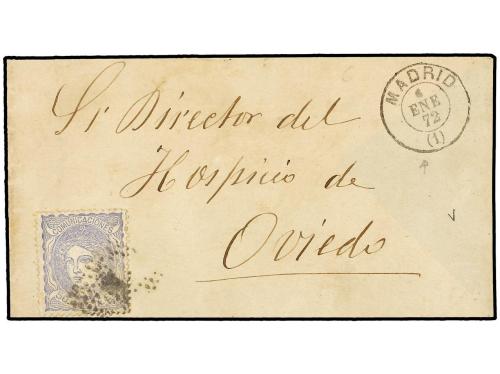 MADRID
ENE
72
(1)
Sr Director del
Hospicio de
Oviedo
COMUNICACIONES